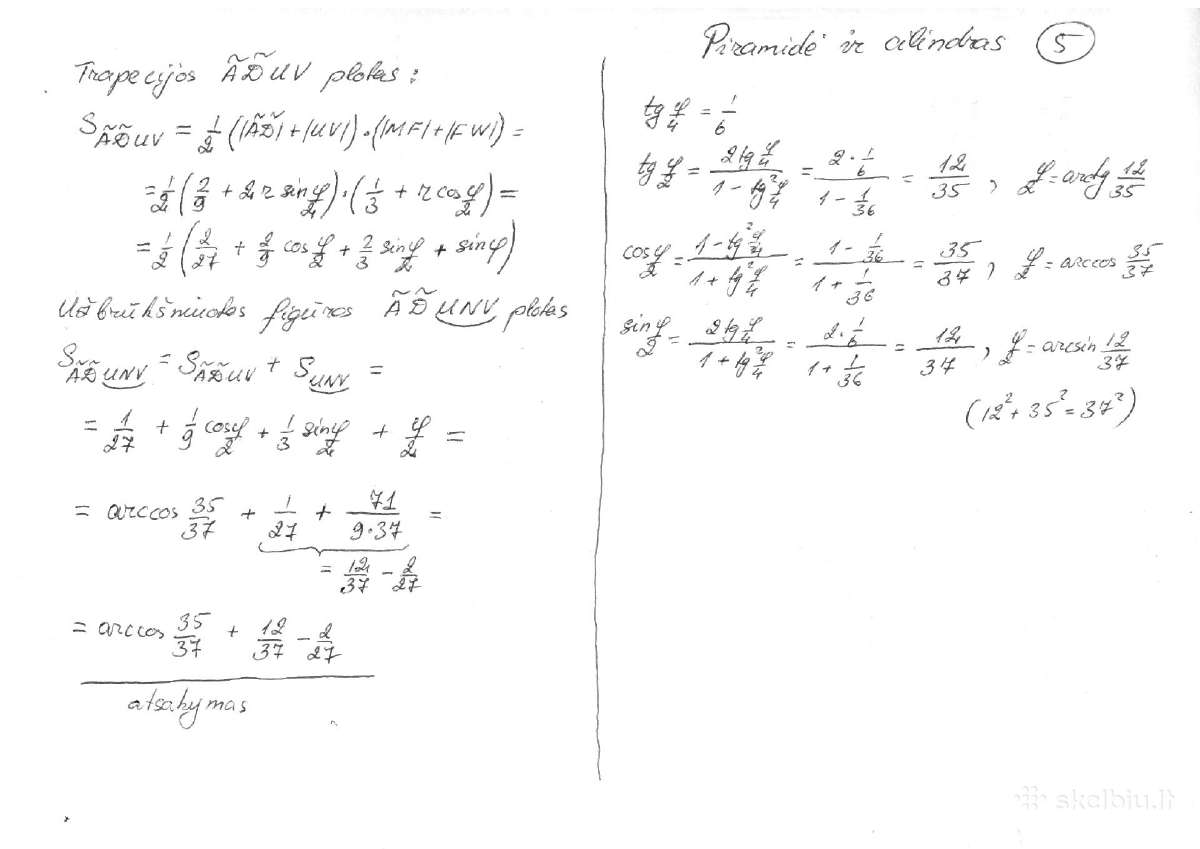 Piramidė ir cilindras (5)
Trapecijos ÃD̃UV plotas:
S_{ÃD̃UV} = 1/2 (|ÃD̃| + |UV|)·(|MF| + |FW|) =
= 1/2 (2/9 + 2r sin φ/2)·(1/3 + r cos φ/2) =
= 1/2 (2/27 + 2/9 cos φ/2 + 2/3 sin φ/2 + sin φ)
Užbrūkšniuotos figūros ÃD̃UNV plotas
S_{ÃD̃UNV} = S_{ÃD̃UV} + S_{UNV} =
= 1/27 + 1/9 cos φ/2 + 1/3 sin φ/2 + φ/2 =
= arccos 35/37 + 1/27 + 71/(9·37) =
= 12/37 - 2/27
= arccos 35/37 + 12/37 - 2/27
atsakymas
tg φ/4 = 1/6
tg φ/2 = (2 tg φ/4)/(1 - tg² φ/4) = (2 · 1/6)/(1 - 1/36) = 12/35, φ/2 = arctg 12/35
cos φ/2 = (1 - tg² φ/4)/(1 + tg² φ/4) = (1 - 1/36)/(1 + 1/36) = 35/37, φ/2 = arccos 35/37
sin φ/2 = (2 tg φ/4)/(1 + tg² φ/4) = (2 · 1/6)/(1 + 1/36) = 12/37, φ/2 = arcsin 12/37
(12² + 35² = 37²)
skelbiu.lt